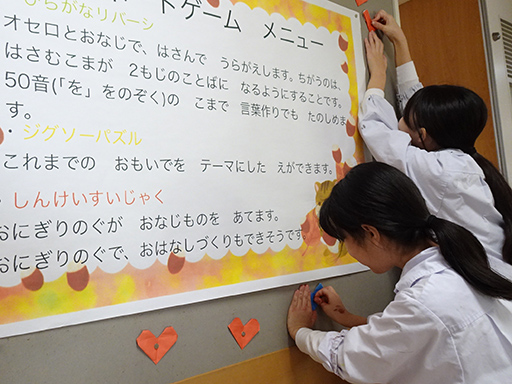 ひらがなリバーシ
ードゲーム メニュー
オセロとおなじで、はさんで うらがえします。ちがうのは、
はさむこまが 2もじのことばに なるようにすることです。
50音(「を」をのぞく)の こまで 言葉作りでも たのしめま
す。
・ジグソーパズル
これまでの おもいでを テーマにした えができます。
・しんけいすいじゃく
おにぎりのぐが おなじものを あてます。
おにぎりのぐで、おはなしづくりもできそうです